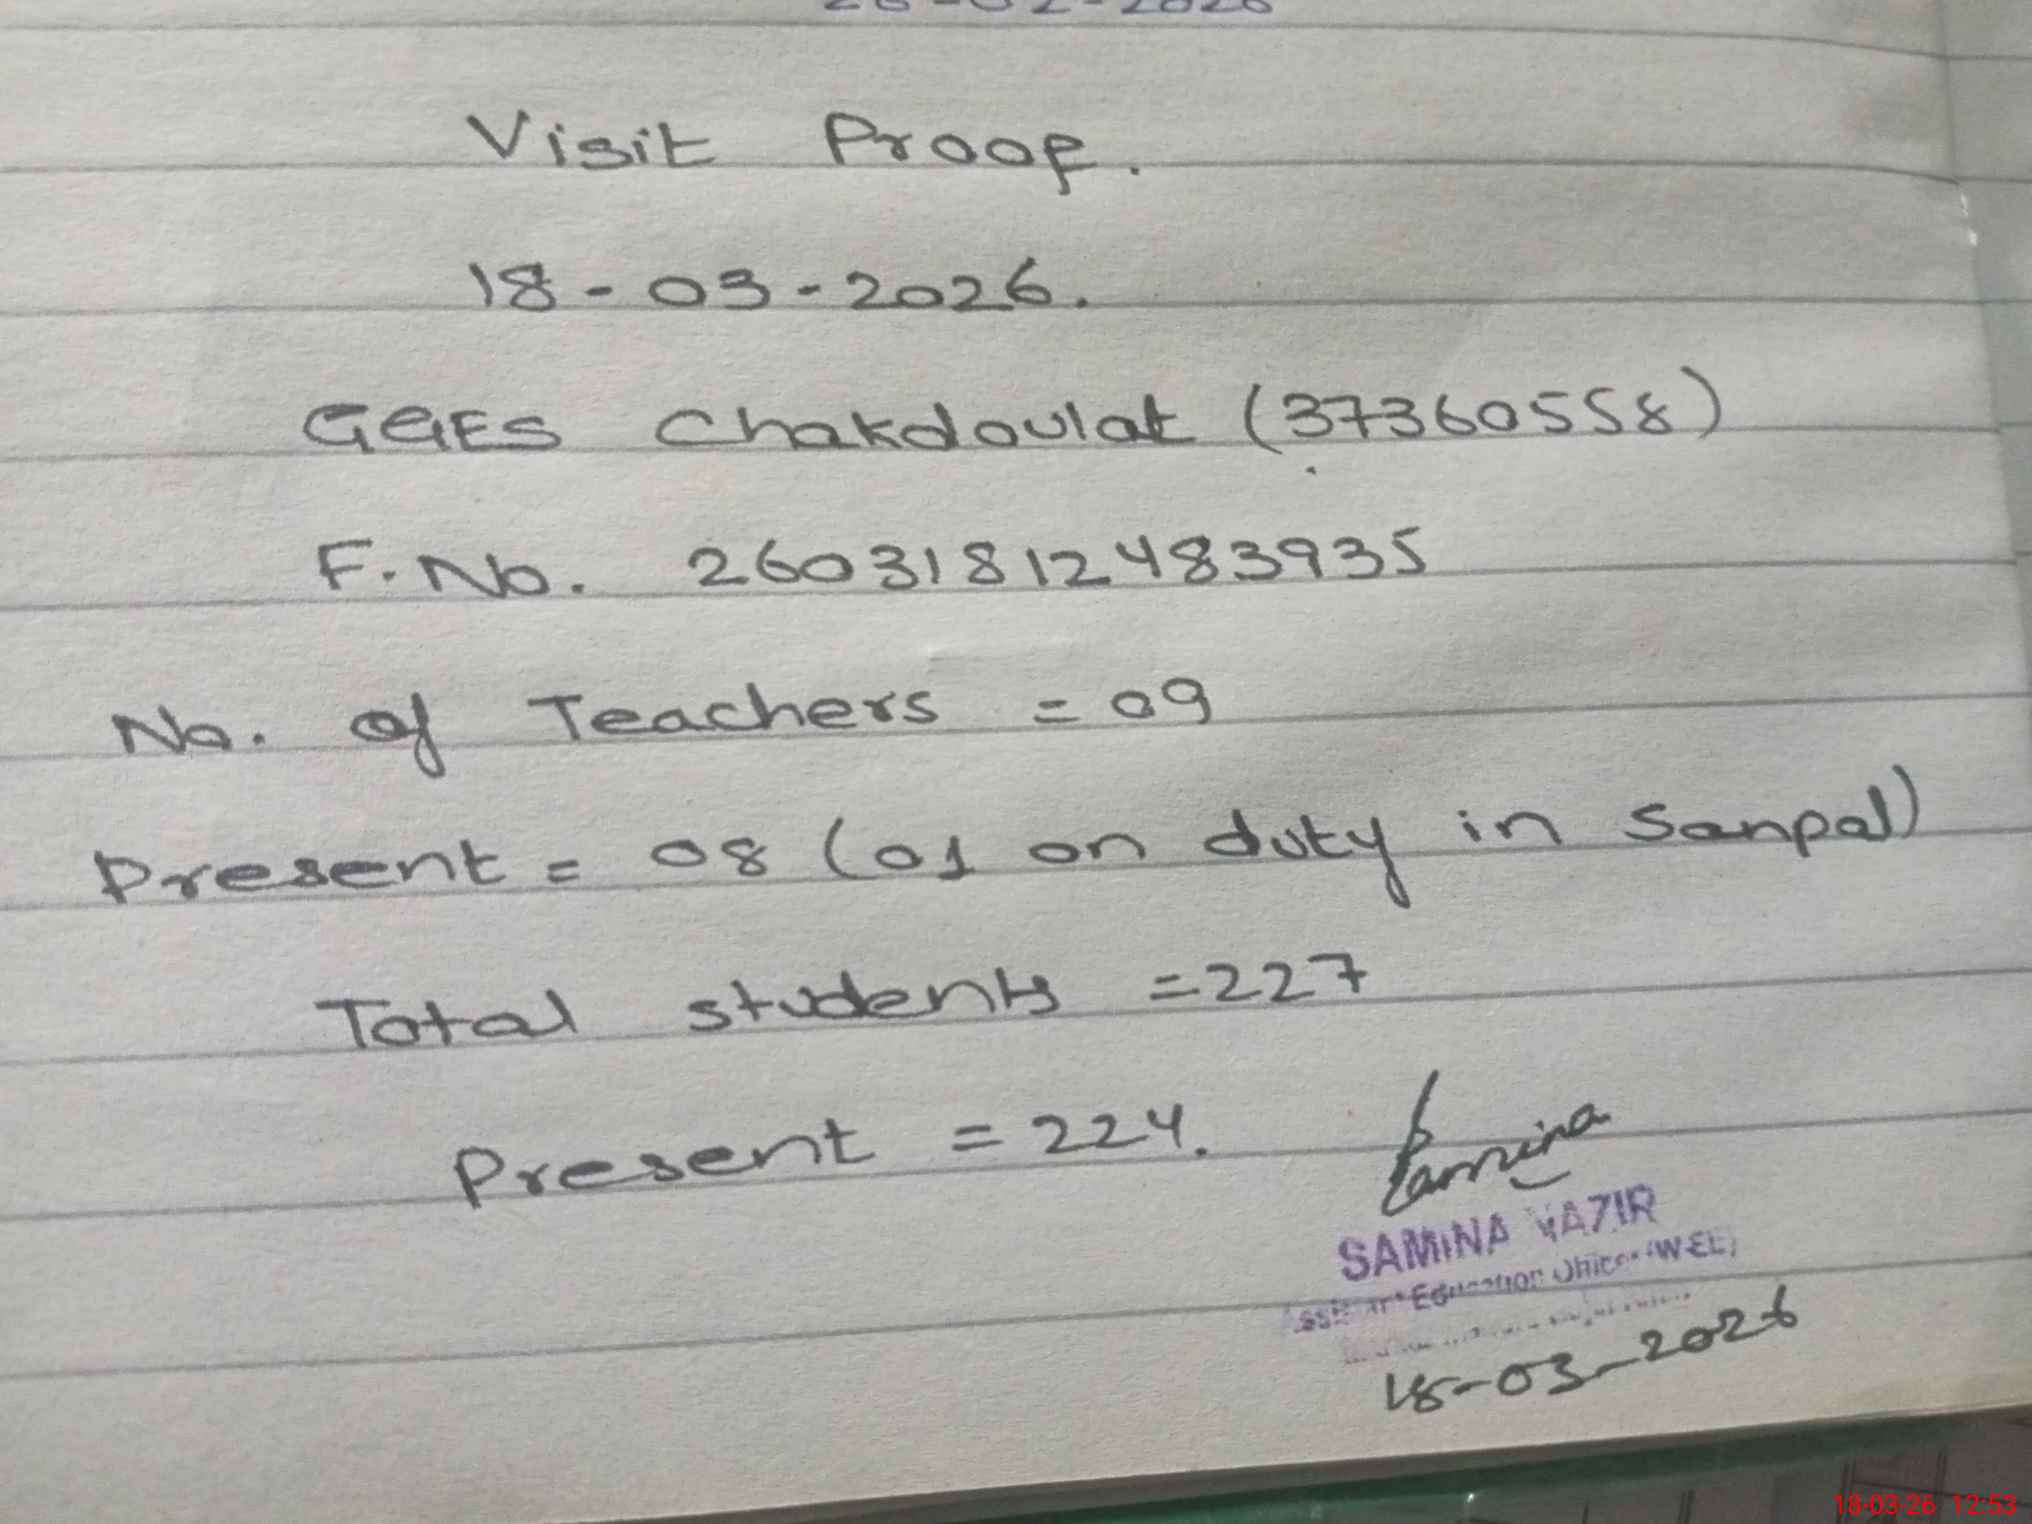 Visit Proof.
18-03-2026.
GGES Chakdoulat (37360558)
F.No. 26031812483935
No. of Teachers = 09
Present = 08 (01 on duty in Sanpal)
Total students = 227
Present = 224.
Samina
SAMINA VAZIR
Education Officer (W-EE)
18-03-2026
18-03-26 12:53